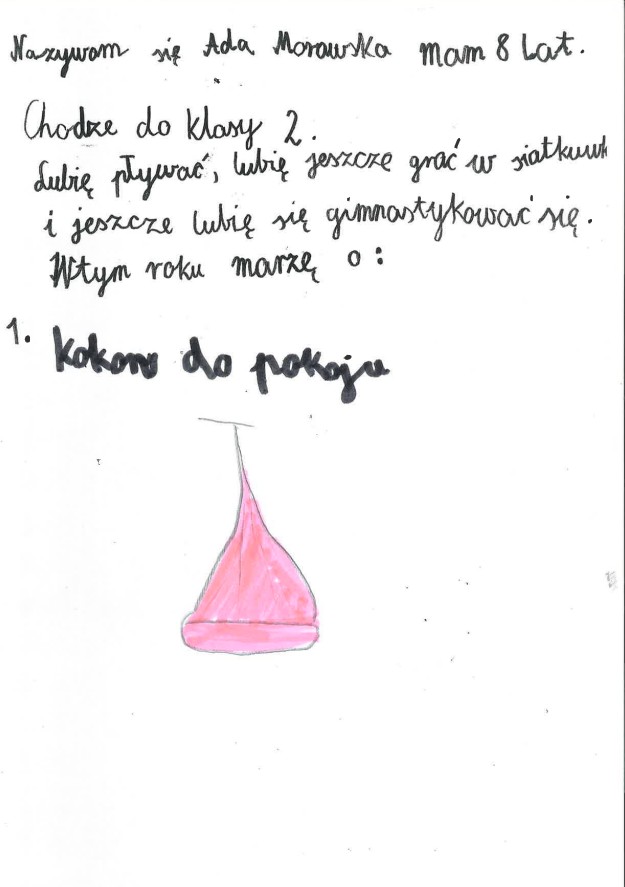 Nazywam się Ada Morawska mam 8 Lat.
Chodze do klasy 2.
Lubię pływać, lubię jeszcze grać w siatkuwk
i jeszcze lubię się gimnastykować się.
Wtym roku marzę o:
1. kokon do pokoju